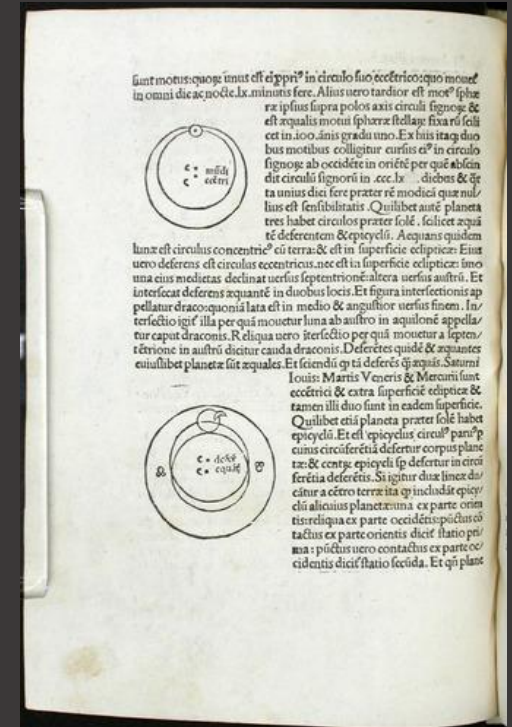 sunt motus:quorꝝ unus est eiꝰ ꝓpriꝰ in circulo suo eccẽtrico:quo mouet̃
in omni die ac nocte.lx.minutis fere. Alius uero tardior est motꝰ sphæ
ræ ipsius supra polos axis circuli signoꝝ &
est æqualis motui sphæræ stellaꝝ fixarũ scili
cet in.100.ãnis gradu uno. Ex hiis itaqꝫ duo
bus motibus colligitur cursus eiꝰ in circulo
signoꝝ ab occidẽte in oriẽtẽ per quẽ abscin
dit circulũ signorũ in .ccc.lx . diebus & q̃r
ta unius diei fere præter rẽ modicã quæ nul/
lius est sensibilitatis . Quilibet autẽ planeta
tres habet circulos præter solẽ . scilicet æquã
tẽ deferentem & epicyclũ. Aequans quidem
lunæ est circulus concentricꝰ cũ terra:& est in superficie eclipticæ: Eius
uero deferens est circulus eccentricus.nec est in superficie eclipticæ: imo
una eius medietas declinat uersus septentrionẽ:altera uersus austrũ. Et
intersecat deferens æquantẽ in duobus locis.Et figura intersectionis ap
pellatur draco:quoniã lata est in medio & angustior uersus finem . In/
tersectio igit̃ illa per quã mouetur luna ab austro in aquilonẽ appella/
tur caput draconis. Reliqua uero ĩtersectio per quã mouetur a septen/
tẽtrione in austrũ dicitur cauda draconis. Deferẽtes quidẽ & æquantes
cuiuslibet planetæ sũt æquales. Et sciendũ ꝙ tã deferẽs q̃ꝫ æquãs. Saturni
Iouis: Martis Veneris & Mercurii sunt
eccẽtrici & extra superficiẽ eclipticæ &
tamen illi duo sunt in eadem superficie.
Quilibet etiã planeta præter solẽ habet
epicyclũ. Et est epicyclus circulꝰ paruꝰ ꝑ
cuius circũferẽtiã defertur corpus plane
tæ: & centꝝ epicycli sꝑ defertur in circũ
ferẽtia deferẽtis. Si igitur duæ lineæ du/
cãtur a cẽtro terræ ita ꝙ includãt epicy/
clũ alicuius planetæ:una ex parte orien
tis:reliqua ex parte occidẽtis:pũctus cõ
tactus ex parte orientis dicit̃ statio pri/
ma : pũctus uero contactus ex parte oc/
cidentis dicit̃ statio secũda. Et qñ plane
c mũdi
c eccẽtri
c defe᷑
c equãt̃